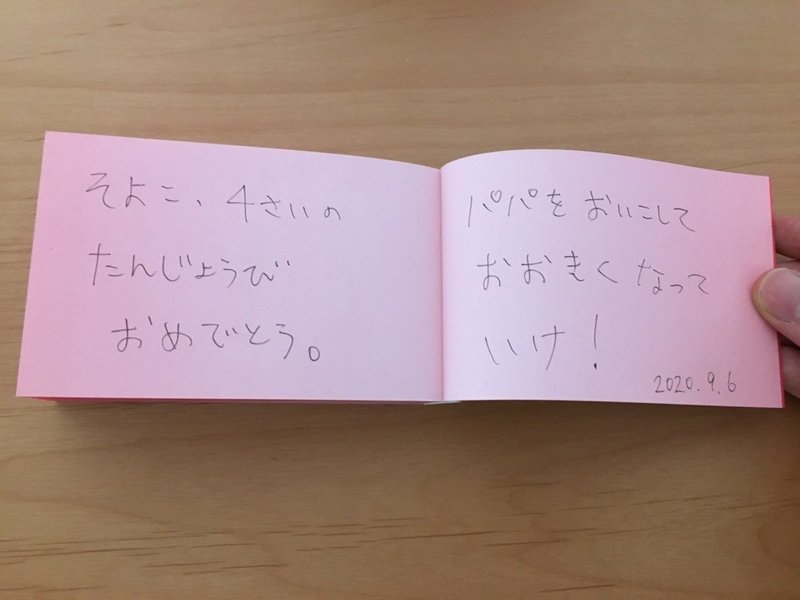 そよこ、4さいの
たんじょうび
おめでとう。
パパをおいこして
おおきくなって
いけ!
2020.9.6